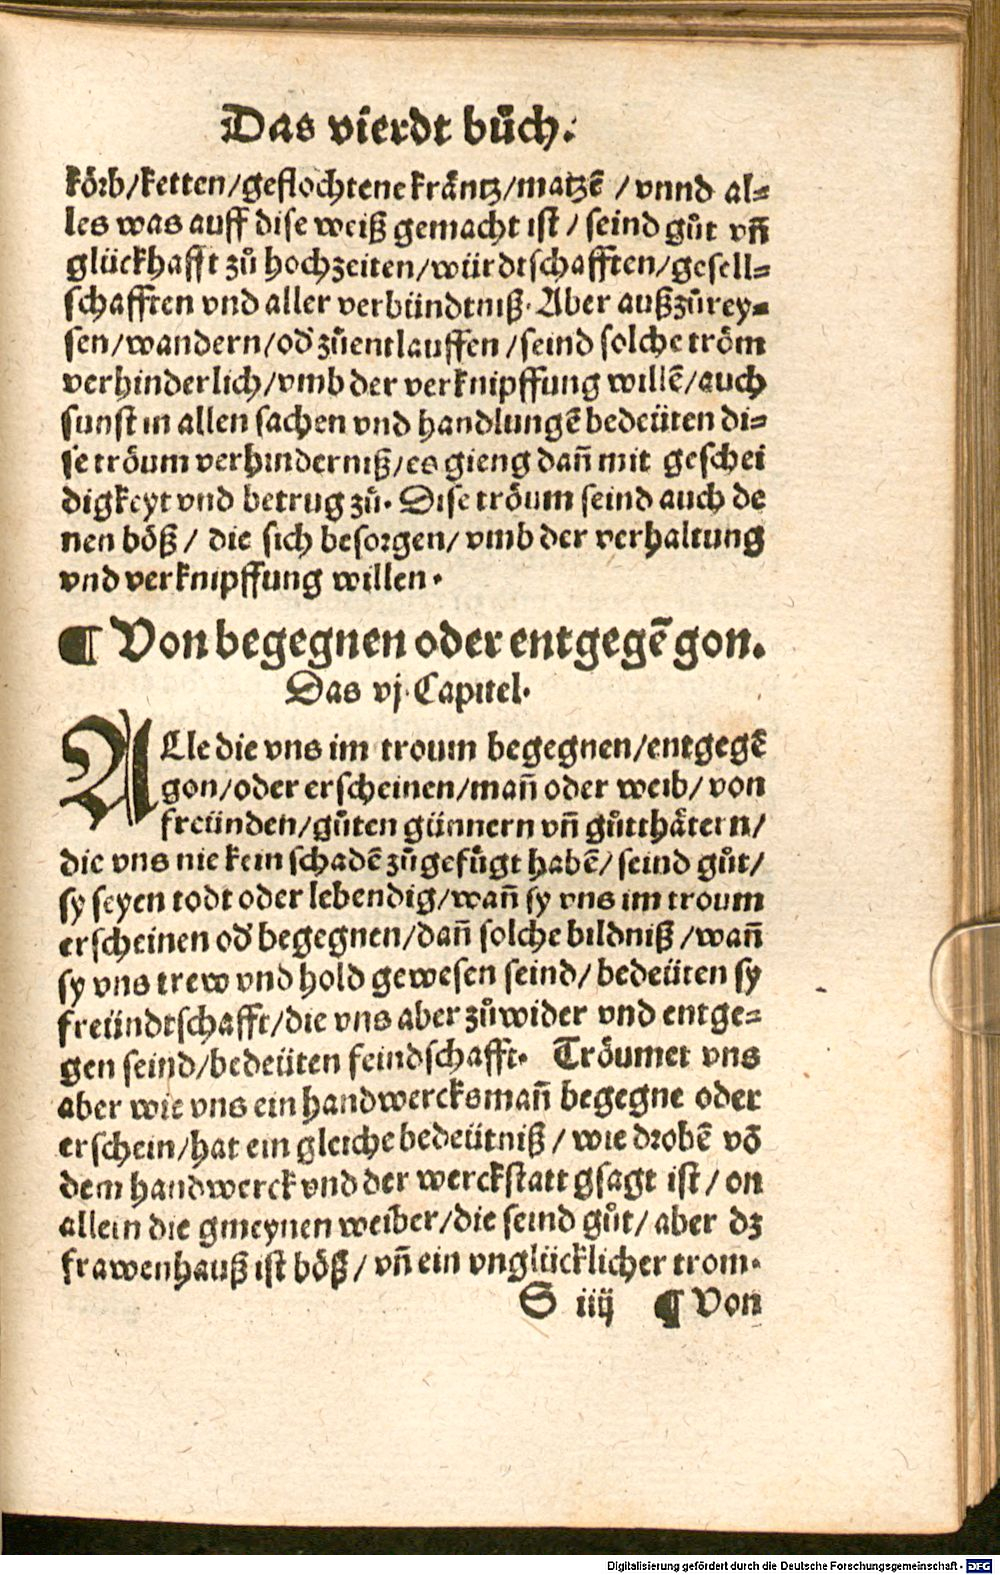 Das vierdt bůch.
körb/ketten/geflochtene kräntz/matzē /vnnd al⸗
les was auff dise weiß gemacht ist / seind gůt vñ
glückhafft zů hochzeiten/würdtschafften/gesell⸗
schafften vnd aller verbündtniß. Aber außzůrey⸗
sen/wandern/od' zůentlauffen /seind solche tröm
verhinderlich/vmb der verknipffung willē/auch
sunst in allen sachen vnd handlungē bedeüten di⸗
se tröum verhinderniß/es gieng dañ mit geschei
digkeyt vnd betrug zů. Dise tröum seind auch de
nen böß / die sich besorgen/ vmb der verhaltung
vnd verknipffung willen.
¶ Von begegnen oder entgegē gon.
Das vj. Capitel.
ALle die vns im troum begegnen/entgegē
gon/oder erscheinen/mañ oder weib/ von
freünden/gůten günnern vñ gůtthätern/
die vns nie kein schadē zůgefügt habē/ seind gůt/
sy seyen todt oder lebendig/wañ sy vns im troum
erscheinen od' begegnen/dañ solche bildniß /wañ
sy vns trew vnd hold gewesen seind/ bedeüten sy
freündtschafft/die vns aber zůwider vnd entge⸗
gen seind/bedeüten feindschafft. Tröumet vns
aber wie vns ein handwercksmañ begegne oder
erschein/hat ein gleiche bedeütniß / wie drobē vō
dem handwerck vnd der werckstatt gsagt ist / on
allein die gmeynen weiber/die seind gůt/ aber dz
frawenhauß ist böß / vñ ein vnglücklicher trom.
S iiij ¶ Von
Digitalisierung gefördert durch die Deutsche Forschungsgemeinschaft - DFG